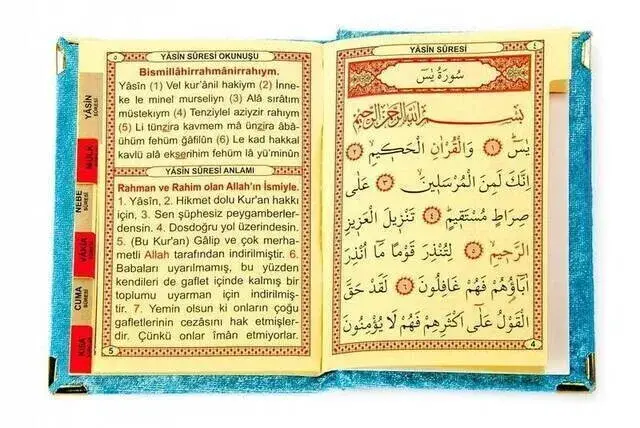 ٥
YÂSİN SÛRESİ OKUNUŞU
Bismillâhirrahmânirrahıym.
Yâsîn (1) Vel kur'ânil hakiym (2) İnne-
ke le minel murseliyn (3) Alâ sırâtım
müstekıym (4) Tenziylel aziyzir rahıym
(5) Li tünzira kavmem mâ ünzira âbâ-
ühüm fehüm gâfilûn (6) Le kad hakkal
kavlü alâ ekserihim fehüm lâ yü'minûn
YÂSİN SÛRESİ ANLAMI
Rahman ve Rahim olan Allah'ın İsmiyle.
1. Yâsîn, 2. Hikmet dolu Kur'an hakkı
için, 3. Sen şüphesiz peygamberler-
densin. 4. Dosdoğru yol üzerindesin.
5. (Bu Kur'an) Gâlip ve çok merha-
metli Allah tarafından indirilmiştir. 6.
Babaları uyarılmamış, bu yüzden
kendileri de gaflet içinde kalmış bir
toplumu uyarman için indirilmiş-
tir. 7. Yemin olsun ki onların çoğu
gafletlerinin cezasını hak etmişler-
dir. Çünkü onlar îmân etmiyorlar.
5
YÂSİN
SÛRESİ
MÜLK
NEBE
SÛRESİ
VAKIA
CUMA
SÛRESİ
KISA
YÂSİN SÛRESİ
٤
سُورَةُ يٰسٓ
بِسْــمِ اللّٰهِ الرَّحْمٰنِ الرَّحِيمِ
يٰسٓ ﴿١﴾ وَالْقُرْاٰنِ الْحَكِيمِ ﴿٢﴾
اِنَّكَ لَمِنَ الْمُرْسَلِينَ ﴿٣﴾ عَلٰى
صِرَاطٍ مُسْتَقِيمٍ ﴿٤﴾ تَنْزِيلَ الْعَزِيزِ
الرَّحِيمِ ﴿٥﴾ لِتُنْذِرَ قَوْمًا مَٓا اُنْذِرَ
اٰبَٓاؤُهُمْ فَهُمْ غَافِلُونَ ﴿٦﴾ لَقَدْ حَقَّ
الْقَوْلُ عَلٰٓى اَكْثَرِهِمْ فَهُمْ لَا يُؤْمِنُونَ
4